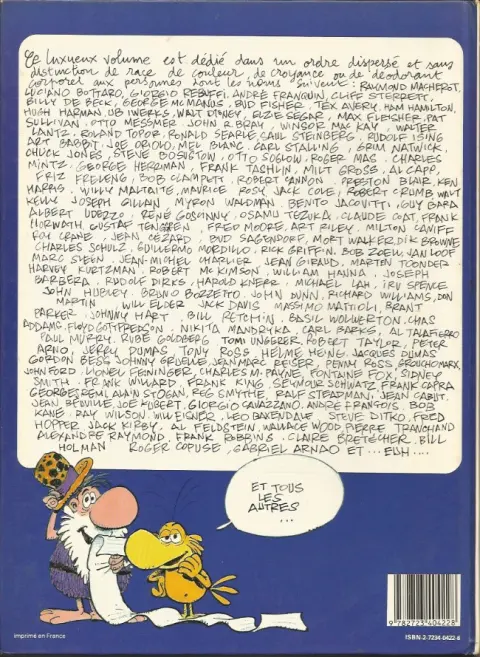 Ce luxueux volume est dédié dans un ordre dispersé et sans
distinction de race de couleur, de croyance ou de déodorant
corporel aux personnes dont les noms suivent: RAYMOND MACHEROT,
LUCIANO BOTTARO, GIORGIO REBUFFI, ANDRÉ FRANQUIN, CLIFF STERRETT,
BILLY DE BECK, GEORGE MCMANUS, BUD FISHER, TEX AVERY, HAM HAMILTON,
HUGH HARMAN, UB IWERKS, WALT DISNEY, ELZIE SEGAR, MAX FLEISHER, PAT
SULLIVAN, OTTO MESSMER, JOHN R. BRAY, WINSOR MAC KAY, WALTER
LANTZ, ROLAND TOPOR, RONALD SEARLE, SAUL STEINBERG, RUDOLF ISING
ART BABBIT, JOE ORIOLO, MEL BLANC, CARL STALLING, GRIM NATWICK,
CHUCK JONES, STEVE BOSUSTOW, OTTO SOGLOW, ROGER MAS, CHARLES
MINTZ, GEORGE HERRIMAN, FRANK TASHLIN, MILT GROSS, AL CAPP,
FRIZ FRELENG, BOB CLAMPETT, ROBERT CANNON, PRESTON BLAIR, KEN
HARRIS, WILLY MALTAITE, MAURICE ROSY, JACK COLE, ROBERT CRUMB, WALT
KELLY, JOSEPH GILLAIN, MYRON WALDMAN, BENITO JACOVITTI, GUY BARA
ALBERT UDERZO, RENÉ GOSCINNY, OSAMU TEZUKA, CLAUDE COAT, FRANK
HORWATH, GUSTAF TENGGREN, FRED MOORE, ART RILEY, MILTON CANIFF
ROY CRANE, JEAN CÉZARD, BUD SAGENDORF, MORT WALKER, DIK BROWNE
CHARLES SCHULZ, GUILLERMO MORDILLO, RICK GRIFFIN, BOB ZOELL, VAN LOOF
MARC SLEEN, JEAN-MICHEL CHARLIER, JEAN GIRAUD, MARTEN TOONDER
HARVEY KURTZMAN, ROBERT MC KIMSON, WILLIAM HANNA, JOSEPH
BARBERA, RUDOLF DIRKS, HAROLD KNERR, MICHAEL LAH, IRV SPENCE
JOHN HUBLEY, BRUNO BOZZETTO, JOHN DUNN, RICHARD WILLIAMS, DON
MARTIN, WILL ELDER, JACK DAVIS, MASSIMO MATTIOLI, BRANT
PARKER, JOHNNY HART, BILL PETCHIN, BASIL WOLVERTON, CHAS
ADDAMS, FLOYD GOTTFREDSON, NIKITA MANDRYKA, CARL BARKS, AL TALIAFERRO
PAUL MURRY, RUBE GOLDBERG, TOMI UNGERER, ROBERT TAYLOR, PETER
ARNO, JERRY DUMAS, TONY ROSS, HELME HEINE, JACQUES DUMAS
GORDON BESS, JOHNNY GRUELLE, JEAN MARC REISER, PENNY ROSS, GROUCHO MARX,
JOHN FORD, LIONEL FEININGER, CHARLES M. PAYNE, FONTAINE FOX, SIDNEY
SMITH, FRANK WILLARD, FRANK KING, SEYMOUR SCHWATZ, FRANK CAPRA
GEORGES REMI, ALAIN STOGAN, REG SMYTHE, RALF STEADMAN, JEAN CABUT,
JEAN BEUVILLE, JOE KUBERT, GIORGIO CAVAZZANO, ANDRÉ FRANÇOIS, BOB
KANE, RAY WILSON, WILL EISNER, LEO BAXENDALE, STEVE DITKO, FRED
HOPPER, JACK KIRBY, AL FELDSTEIN, WALLACE WOOD, PIERRE TRANCHAND
ALEXANDRE RAYMOND, FRANK ROBBINS, CLAIRE BRETECHER, BILL
HOLMAN, ROGER COPUSE, GABRIEL ARNAO ET... EUH....
ET TOUS
LES
AUTRES
...
imprimé en France
9 782723 404228
ISBN-2-7234-0422-6